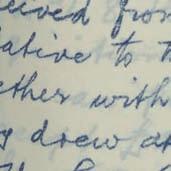 ceived from
lative to t
ether with
g drew at